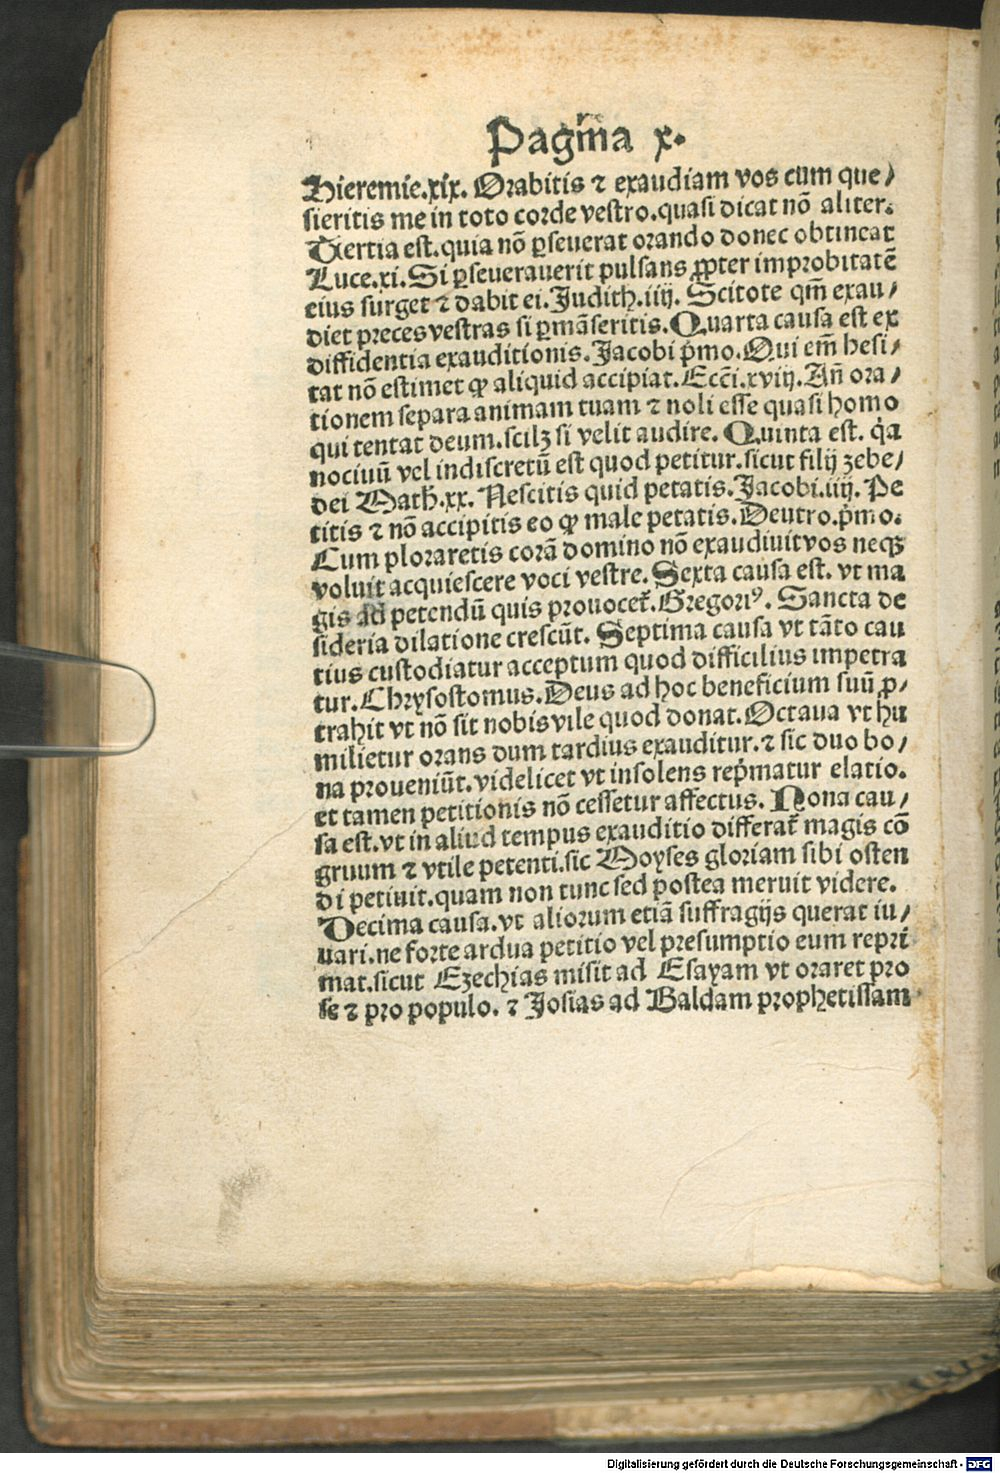 Pagīna x.
Hieremie.xix. Orabitis ⁊ exaudiam vos cum que/
sieritis me in toto corde vestro.quasi dicat nō aliter.
Tertia est.quia nō ꝑseuerat orando donec obtineat
Luce.xi. Si ꝑseuerauerit pulsans ꝓpter improbitatē
eius surget ⁊ dabit ei. Judith.iiij. Scitote qm̄ exau/
diet preces vestras si ꝑmāseritis. Quarta causa est ex
diffidentia exauditionis. Jacobi p̄mo. Qui em̄ hesi/
tat nō estimet ꝙ aliquid accipiat. Ecc̄i.xviij. Añ ora/
tionem separa animam tuam ⁊ noli esse quasi homo
qui tentat deum.scilꝫ si velit audire. Quinta est. q̇a
nociuū vel indiscretū est quod petitur.sicut filij zebe/
dei Math̄.xx. Nescitis quid petatis. Jacobi.iiij. Pe
titis ⁊ nō accipitis eo ꝙ male petatis. Deutro.p̄mo.
Cum ploraretis corā domino nō exaudiuit vos neqꝫ
voluit acquiescere voci vestre. Sexta causa est. vt ma
gis ad petendū quis prouocet̄. Gregoriꝰ. Sancta de
sideria dilatione crescūt. Septima causa vt tāto cau
tius custodiatur acceptum quod difficilius impetra
tur. Chrysostomus. Deus ad hoc beneficium suū ꝓ/
trahit vt nō sit nobis vile quod donat. Octaua vt hu
milietur orans dum tardius exauditur.⁊ sic duo bo/
na proueniūt.videlicet vt insolens rep̄matur elatio.
et tamen petitionis nō cessetur affectus. Nona cau/
sa est.vt in aliud tempus exauditio differat̄ magis cō
gruum ⁊ vtile petenti.sic Moyses gloriam sibi osten
di petiuit.quam non tunc sed postea meruit videre.
Decima causa.vt aliorum etiā suffragijs querat iu/
uari.ne forte ardua petitio vel presumptio eum repri
mat.sicut Ezechias misit ad Esayam vt oraret pro
se ⁊ pro populo. ⁊ Josias ad Baldam prophetissam
Digitalisierung gefördert durch die Deutsche Forschungsgemeinschaft - DFG